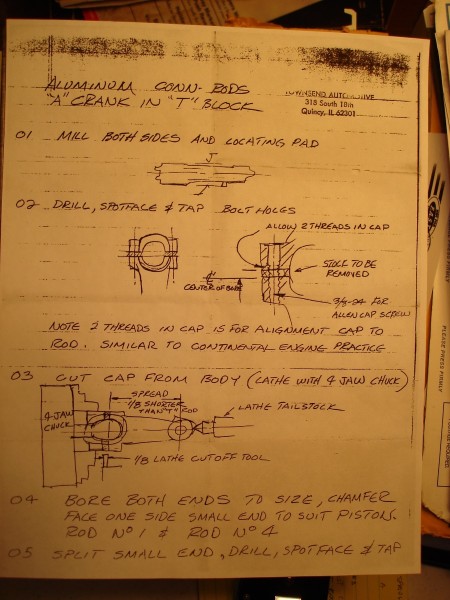 ALUMINUM CONN-RODS
"A" CRANK IN "T" BLOCK
TOWNSEND AUTOMOTIVE
318 South 18th
Quincy, IL 62301
01 MILL BOTH SIDES AND LOCATING PAD
02 DRILL, SPOTFACE & TAP BOLT HOLES
ALLOW 2 THREADS IN CAP
STOCK TO BE
REMOVED
CENTER OF BORE
3/8-24 FOR
ALLEN CAP SCREW
NOTE 2 THREADS IN CAP IS FOR ALIGNMENT CAP TO
ROD. SIMILAR TO CONTINENTAL ENGINE PRACTICE
03 CUT CAP FROM BODY (LATHE WITH 4 JAW CHUCK)
4-JAW
CHUCK
SPREAD
1/8 SHORTER
THAN "T" ROD
LATHE TAILSTOCK
1/8 LATHE CUTOFF TOOL
04 BORE BOTH ENDS TO SIZE, CHAMFER
FACE ONE SIDE SMALL END TO SUIT PISTON.
ROD Nº 1 & ROD Nº 4
05 SPLIT SMALL END, DRILL, SPOTFACE & TAP
PLEASE PRESS FIRMLY